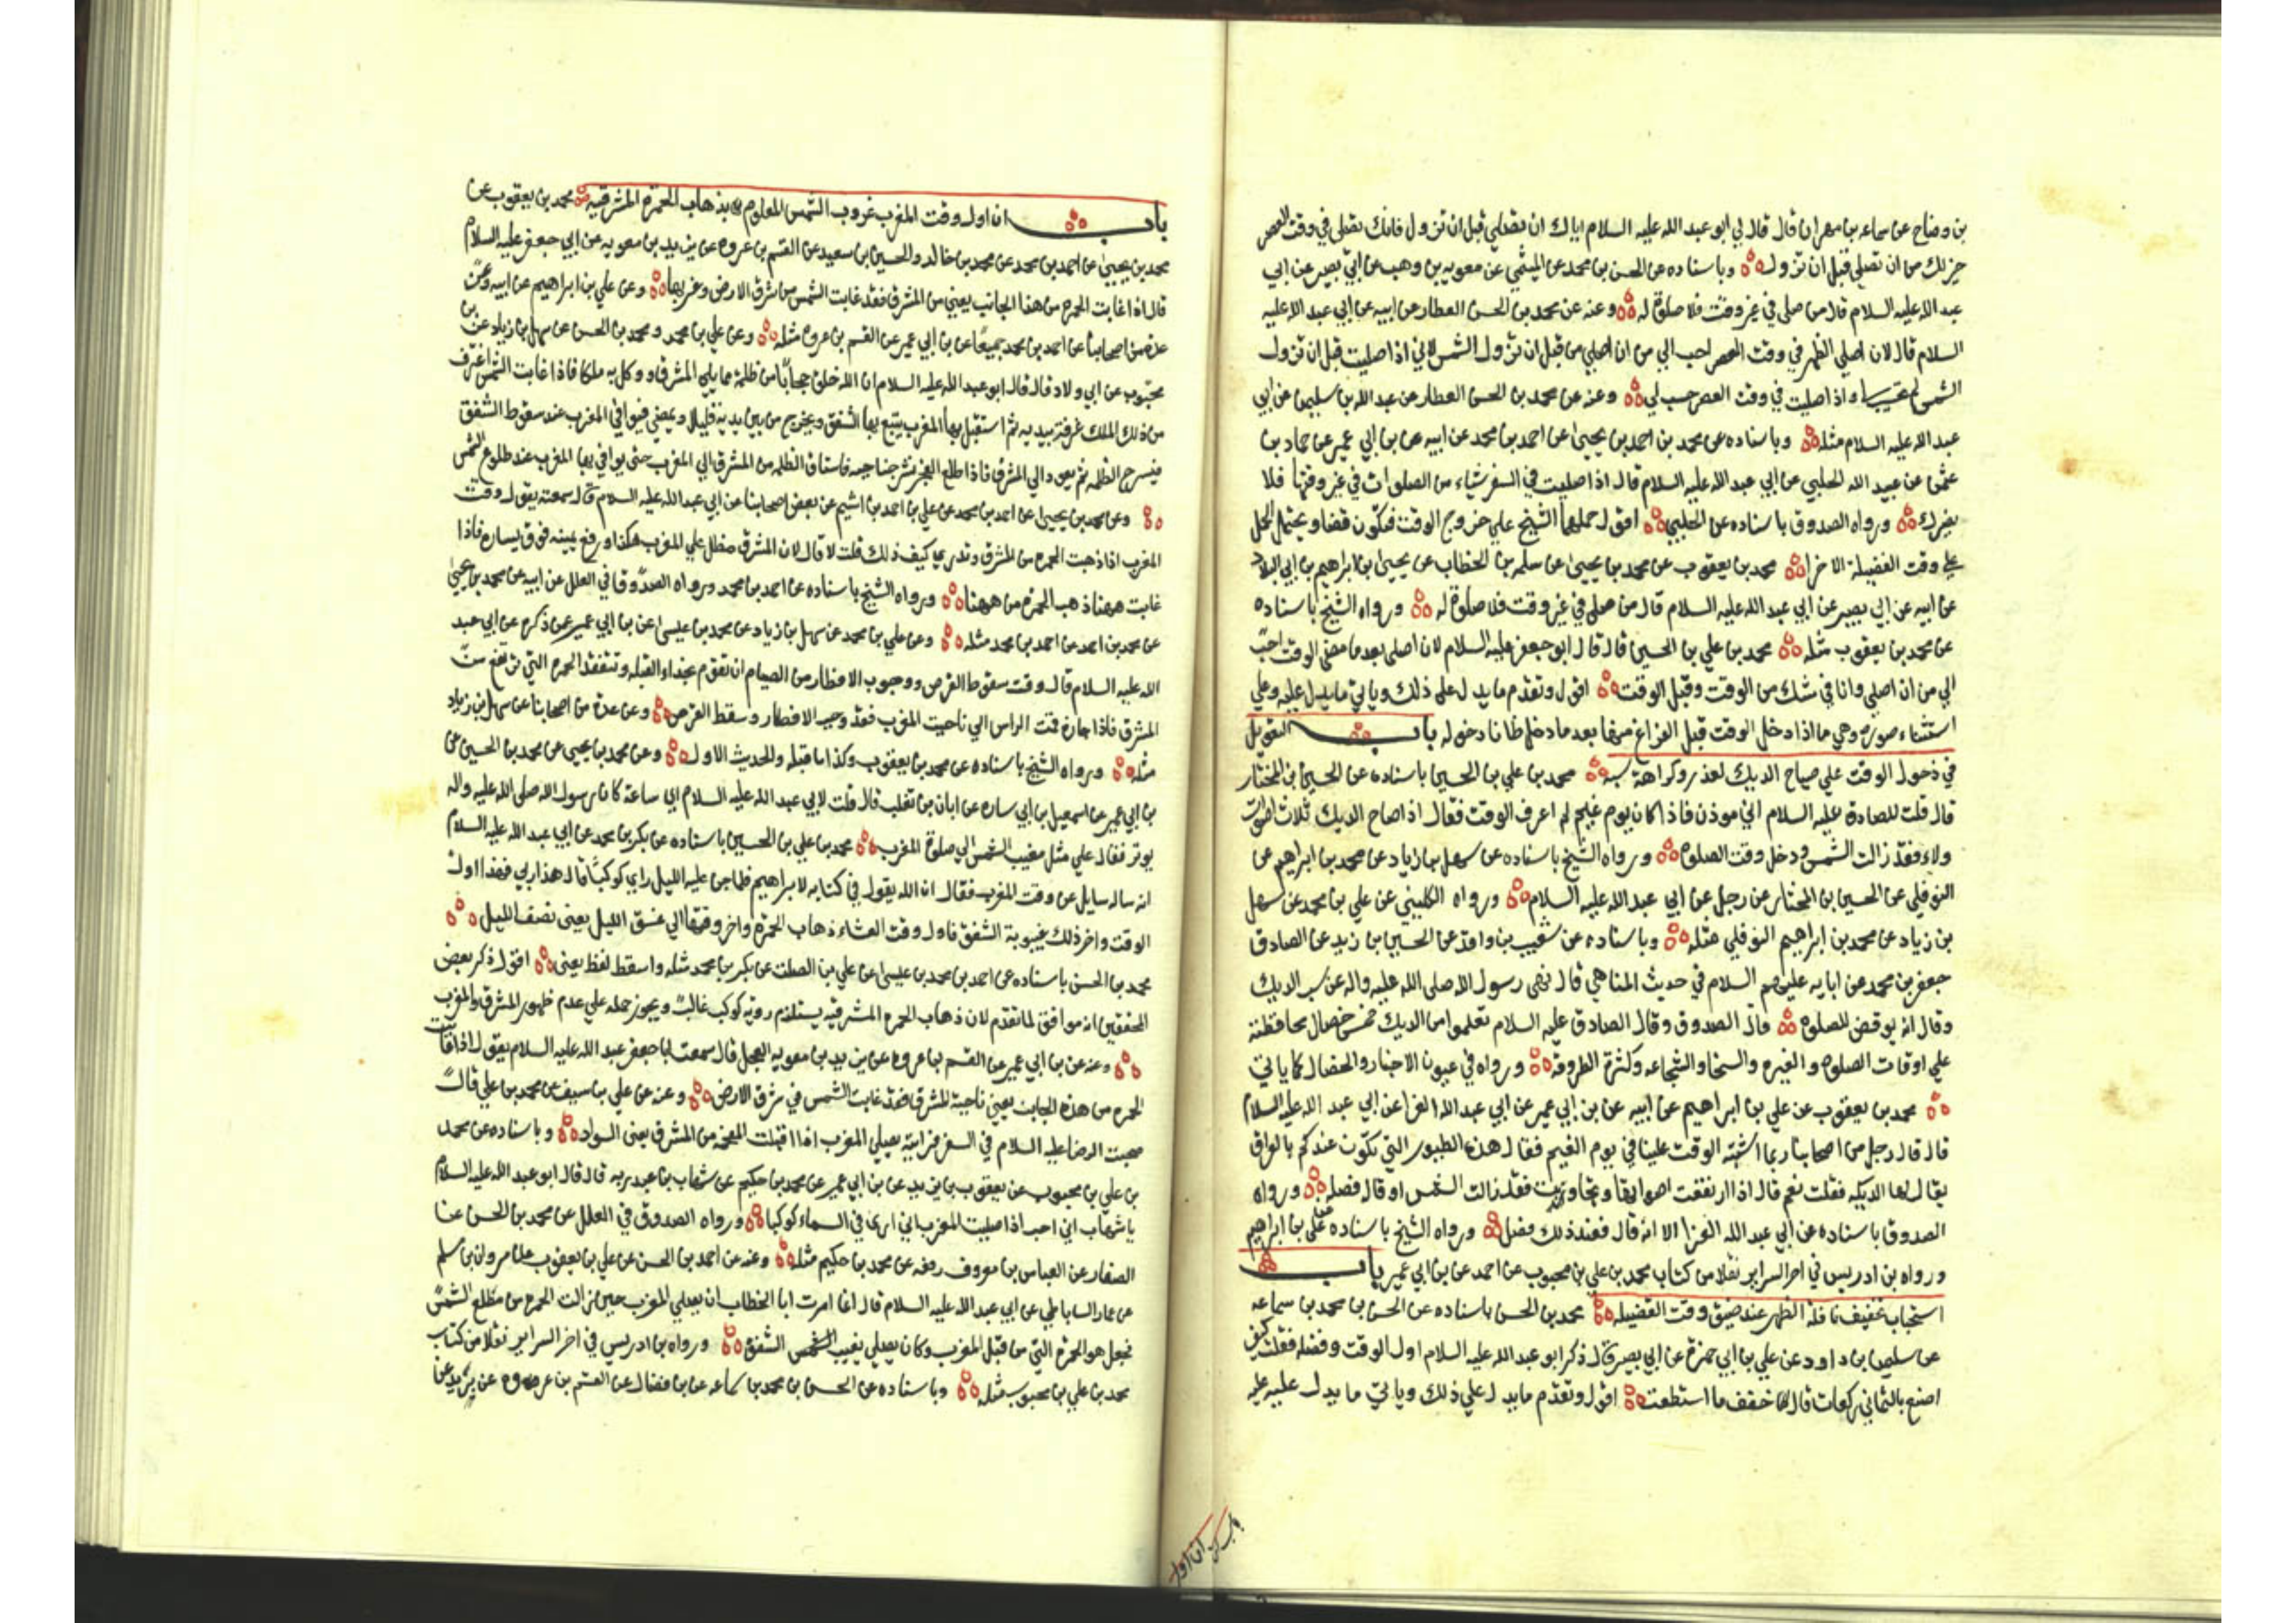 بن وضاح عن سماعه بن مهران قال قال لي ابو عبد الله عليه السلام اياك ان تصلي قبل ان تزول فانك تصلي في وقت العصر
خير لك من ان تصلي قبل ان تزول وباسناده عن الحسن بن محمد عن الميثمي عن معويه بن وهب عن ابي بصير عن ابي
عبد الله عليه السلام قال من صلى في غير وقت فلا صلوة له وعنه عن محمد بن الحسن العطار عن ابيه عن ابي عبد الله عليه
السلام قال لان اصلي الظهر في وقت العصر احب الي من ان اصلي من قبل ان تزول الشمس لاني اذا صليت قبل ان تزول
الشمس لم واذا صليت في وقت العصر حسب لي وعنه عن محمد بن الحسن العطار عن عبد الله بن سليمان عن ابي
عبد الله عليه السلام مثله وباسناده عن محمد بن احمد بن يحيى عن احمد بن محمد عن ابيه عن بن ابي عمير عن حماد بن
عثمن عن عبيد الله الحلبي عن ابي عبد الله عليه السلام قال اذا صليت في السفر شياء من الصلوات في غير وقتها فلا
يضرك ورواه الصدوق باسناده عن الحلبي اقول حملهما الشيخ علي خروج الوقت فيكون قضا ويحتمل الحمل
علي وقت الفضيلة الاخر محمد بن يعقوب عن محمد بن يحيى عن سلمه بن الخطاب عن يحيى بن ابراهيم بن ابي البلاد
عن ابيه عن ابي بصير عن ابي عبد الله عليه السلام قال من صلى في غير وقت فلا صلوة له ورواه الشيخ باسناده
عن محمد بن يعقوب مثله محمد بن علي بن الحسين قال قال ابو جعفر عليه السلام لان اصلى بعد ما مضى الوقت احب
الي من ان اصلي وانا في شك من الوقت وقبل الوقت اقول وتقدم ما يدل على ذلك وياتي ما يدل عليه وعلي
استثناء صوره وهي ما اذا دخل الوقت قبل الفراغ منها بعد ما دخل ظانا دخوله باب التعويل
في دخول الوقت علي صياح الديك لعذر وكراهة سبه محمد بن علي بن الحسين باسناده عن الحسين بن المختار
قال قلت للصادق عليه السلام اني موذن فاذا كان يوم غيم لم اعرف الوقت فقال اذا صاح الديك ثلاث اصوات
ولاء فقد زالت الشمس ودخل وقت الصلوه ورواه الشيخ باسناده عن سهل بن زياد عن محمد بن ابراهيم عن
النوفلي عن الحسين بن المختار عن رجل عن ابي عبد الله عليه السلام ورواه الكليني عن علي بن محمد عن سهل
بن زياد عن محمد بن ابراهيم النوفلي مثله وباسناده عن شعيب بن واقد عن الحسين بن زيد عن الصادق
جعفر بن محمد عن ابايه عليهم السلام في حديث المناهي قال نهى رسول الله صلى الله عليه واله عن سب الديك
وقال انه يوقض للصلوه قال الصدوق وقال الصادق عليه السلام تعلموا من الديك خمس خصال محافظته
علي اوقات الصلوه والغيره والسخا والشجاعه وكثرة الطروقه ورواه في عيون الاخبار والخصال كما ياتي
محمد بن يعقوب عن علي بن ابراهيم عن ابيه عن بن ابي عمير عن ابي عبد الله الفرا عن ابي عبد الله عليه السلام
قال قال رجل من اصحابنا ربما اشتبه الوقت علينا في يوم الغيم فقال هذه الطيور التي تكون عندكم بالعراق
يقال لها الديكه فقلت نعم قال اذا ارتفعت اصواتها وتجاوبت فقد زالت الشمس او قال فصله ورواه
الصدوق باسناده عن ابي عبد الله الفرا الا انه قال فعند ذلك فصل ورواه الشيخ باسناده عن علي بن ابراهيم
ورواه بن ادريس في اخر السراير نقلا من كتاب محمد بن علي بن محبوب عن احمد عن بن ابي عمير باب
استحباب تخفيف نافلة الظهر عند ضيق وقت الفضيله محمد بن الحسن باسناده عن الحسن بن محمد بن سماعه
عن سليمان بن داود عن علي بن ابي حمزة عن ابي بصير قال ذكر ابو عبد الله عليه السلام اول الوقت وفضله فقلت كيف
اصنع بالثماني ركعات قال خفف ما استطعت اقول وتقدم ما يدل علي ذلك وياتي ما يدل عليه
باب ان اول وقت المغرب غروب الشمس المعلوم بذهاب الحمرة المشرقيه محمد بن يعقوب عن
محمد بن يحيى عن احمد بن محمد عن محمد بن خالد والحسين بن سعيد عن القسم بن عروه عن يزيد بن معويه عن ابي جعفر عليه السلام
قال اذا غابت الحمره من هذا الجانب يعني من المشرق فقد غابت الشمس من شرق الارض وغربها وعن علي بن ابراهيم عن ابيه وعن
عدة من اصحابنا عن احمد بن محمد جميعا عن بن ابي عمير عن القسم بن عروه مثله وعن علي بن محمد ومحمد بن الحسن عن سهل بن زياد عن بن
محبوب عن ابي ولاد قال قال ابو عبد الله عليه السلام ان الله خلق حجابا من ظلمة مما يلي المشرق ووكل به ملكا فاذا غابت الشمس اغترف
من ذلك الملك غرفة بيديه ثم استقبل بها المغرب يتبع بها الشفق ويخرج من بين يديه قليلا ويمضي فيوافي المغرب عند سقوط الشفق
فيسرح الظلمه ثم يعود الي المشرق فاذا طلع الفجر نشر جناحيه فاستاق الظلمه من المشرق الي المغرب حتى يوافي بها المغرب عند طلوع الشمس
وعن محمد بن يحيى عن احمد بن محمد عن علي بن احمد بن اشيم عن بعض اصحابنا عن ابي عبد الله عليه السلام قال سمعته يقول وقت
المغرب اذا ذهبت الحمره من المشرق وتدري كيف ذلك قلت لا قال لان المشرق مطل علي المغرب هكذا ورفع يمينه فوق يساره فاذا
غابت ههنا ذهب الحمرة من ههنا ورواه الشيخ باسناده عن احمد بن محمد ورواه الصدوق في العلل عن ابيه عن محمد بن يحيى
عن محمد بن احمد عن احمد بن محمد مثله وعن علي بن محمد عن سهل بن زياد عن محمد بن عيسى عن بن ابي عمير عمن ذكره عن ابي عبد
الله عليه السلام قال وقت سقوط القرص ووجوب الافطار من الصيام ان تقوم بحذاء القبله وتتفقد الحمره التي ترتفع من
المشرق فاذا جازت قمت الراس الي ناحيت المغرب فقد وجب الافطار وسقط القرص وعن عدة من اصحابنا عن سهل بن زياد
مثله ورواه الشيخ باسناده عن محمد بن يعقوب وكذا ما قبله والحديث الاول وعن محمد بن يحيى عن محمد بن الحسين عن
بن ابي عمير عن اسمعيل بن ابي ساره عن ابان بن تغلب قال قلت لابي عبد الله عليه السلام اي ساعة كان رسول الله صلى الله عليه واله
يوتر فقال علي مثل مغيب الشمس الي صلوة المغرب محمد بن علي بن الحسين باسناده عن بكر بن محمد عن ابي عبد الله عليه السلام
انه ساله سايل عن وقت المغرب فقال ان الله يقول في كتابه لابراهيم فلما جن عليه الليل راي كوكبا قال هذا ربي فهذا اول
الوقت واخر ذلك غيبوبة الشفق فاول وقت العشاء ذهاب الحمرة واخر وقتها الي غسق الليل يعنى نصف الليل
محمد بن الحسن باسناده عن احمد بن محمد بن عيسى عن علي بن الصلت عن بكر بن محمد مثله واسقط لفظ يعنى اقول ذكر بعض
المحققين انه موافق لما تقدم لان ذهاب الحمره المشرقيه يستلزم روية كوكب غالبا ويجوز حمله علي عدم ظهور المشرق والمغرب
وعنه عن بن ابي عمير عن القسم بن عروه عن يزيد بن معويه العجلي قال سمعت ابا جعفر عبد الله عليه السلام يقول اذا غابت
الحمره من هذه الجانب يعني ناحية المشرق فقد غابت الشمس في شرق الارض وعنه عن علي بن سيف عن محمد بن علي قال
صحبت الرضا عليه السلام في السفر فرايته يصلي المغرب اذا اقبلت الفحمه من المشرق يعنى السواد وباسناده عن محمد
بن علي بن محبوب عن يعقوب بن يزيد عن بن ابي عمير عن محمد بن حكيم عن شهاب بن عبد ربه قال قال ابو عبد الله عليه السلام
يا شهاب اني احب اذا صليت المغرب ان ارى في السماء كوكبا ورواه الصدوق في العلل عن محمد بن الحسن عن
الصفار عن العباس بن معروف رفعه عن محمد بن حكيم مثله وعنه عن احمد بن الحسن عن علي بن يعقوب عن مروان بن سلم
عن عمار الساباطي عن ابي عبد الله عليه السلام قال انما امرت ابا الخطاب ان يصلي المغرب حين زالت الحمره من مطلع الشمس
فجعل هو الحمرة التي من قبل المغرب وكان يصلي يغيب الشفق ورواه بن ادريس في اخر السراير نقلا من كتاب
محمد بن علي بن محبوب مثله وباسناده عن الحسن بن محمد بن سماعه عن بن فضال عن القسم بن عروه عن يزيد عن
باب ان اول